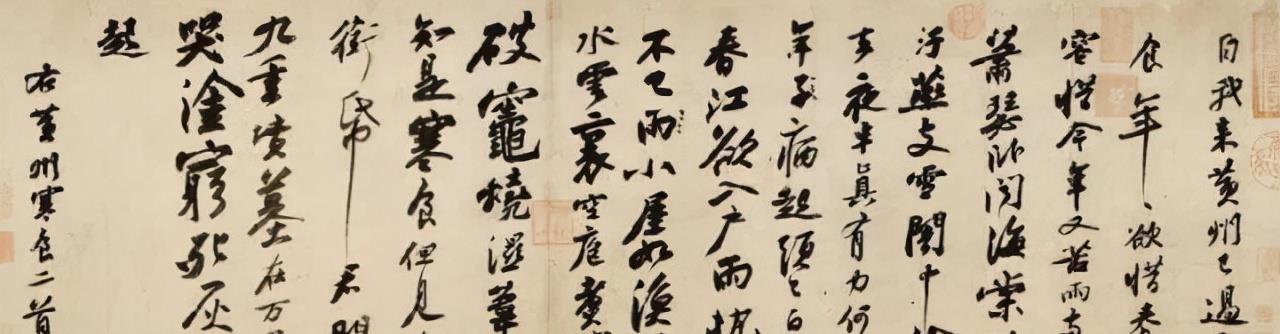 自我来黄州已過
食年〻欲惜春
容惜今年又苦雨兩
蕭瑟卧聞海棠
汙燕支雪闇中
去夜半真有力何
年子病起頭已白
春江欲入戶雨勢
不已雨小屋如漁
水雲裏空庖煮
破竈燒濕葦
知是寒食但見
銜帋君門
九重墳墓在万
哭塗窮死灰
起
右黄州寒食二首